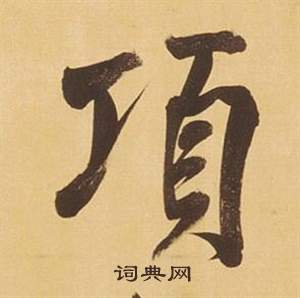 項
词典网